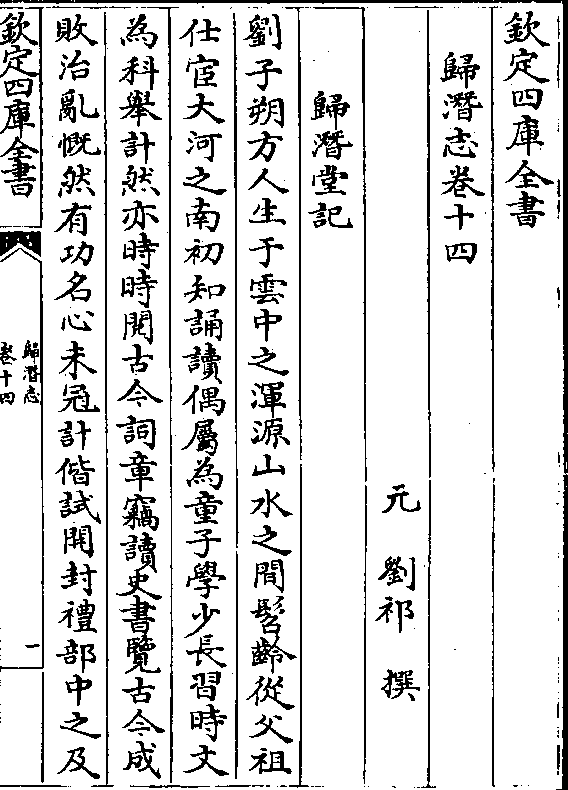 欽定四庫全書
歸潛志卷十四
元 劉祁 撰
歸潛堂記
劉子朔方人生于雲中之渾源山水之間髫齡從父祖
仕宦大河之南初知誦讀偶屬為童子學少長習時文
為科舉計然亦時時閱古今詞章竊讀史書覽古今成
敗治亂慨然有功名心未冠計偕試開封禮部中之及
欽定四庫全書
歸潛志
卷十四
一